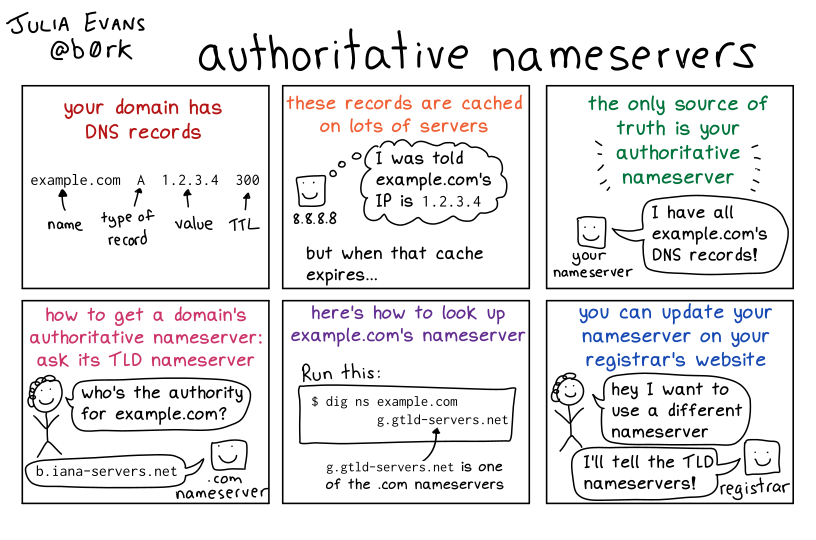 JULIA EVANS
@b0rk
authoritative nameservers
your domain has
DNS records
example.com A 1.2.3.4 300
name
type of
record
value
TTL
these records are cached
on lots of servers
I was told
example.com's
IP is 1.2.3.4
8.8.8.8
but when that cache
expires...
the only source of
truth is your
authoritative
nameserver
I have all
example.com's
DNS records!
your
nameserver
how to get a domain's
authoritative nameserver:
ask its TLD nameserver
who's the authority
for example.com?
b.iana-servers.net
.com
nameserver
here's how to look up
example.com's nameserver
Run this:
$ dig ns example.com
g.gtld-servers.net
g.gtld-servers.net is one
of the .com nameservers
you can update your
nameserver on your
registrar's website
hey I want to
use a different
nameserver
I'll tell the TLD
nameservers!
registrar